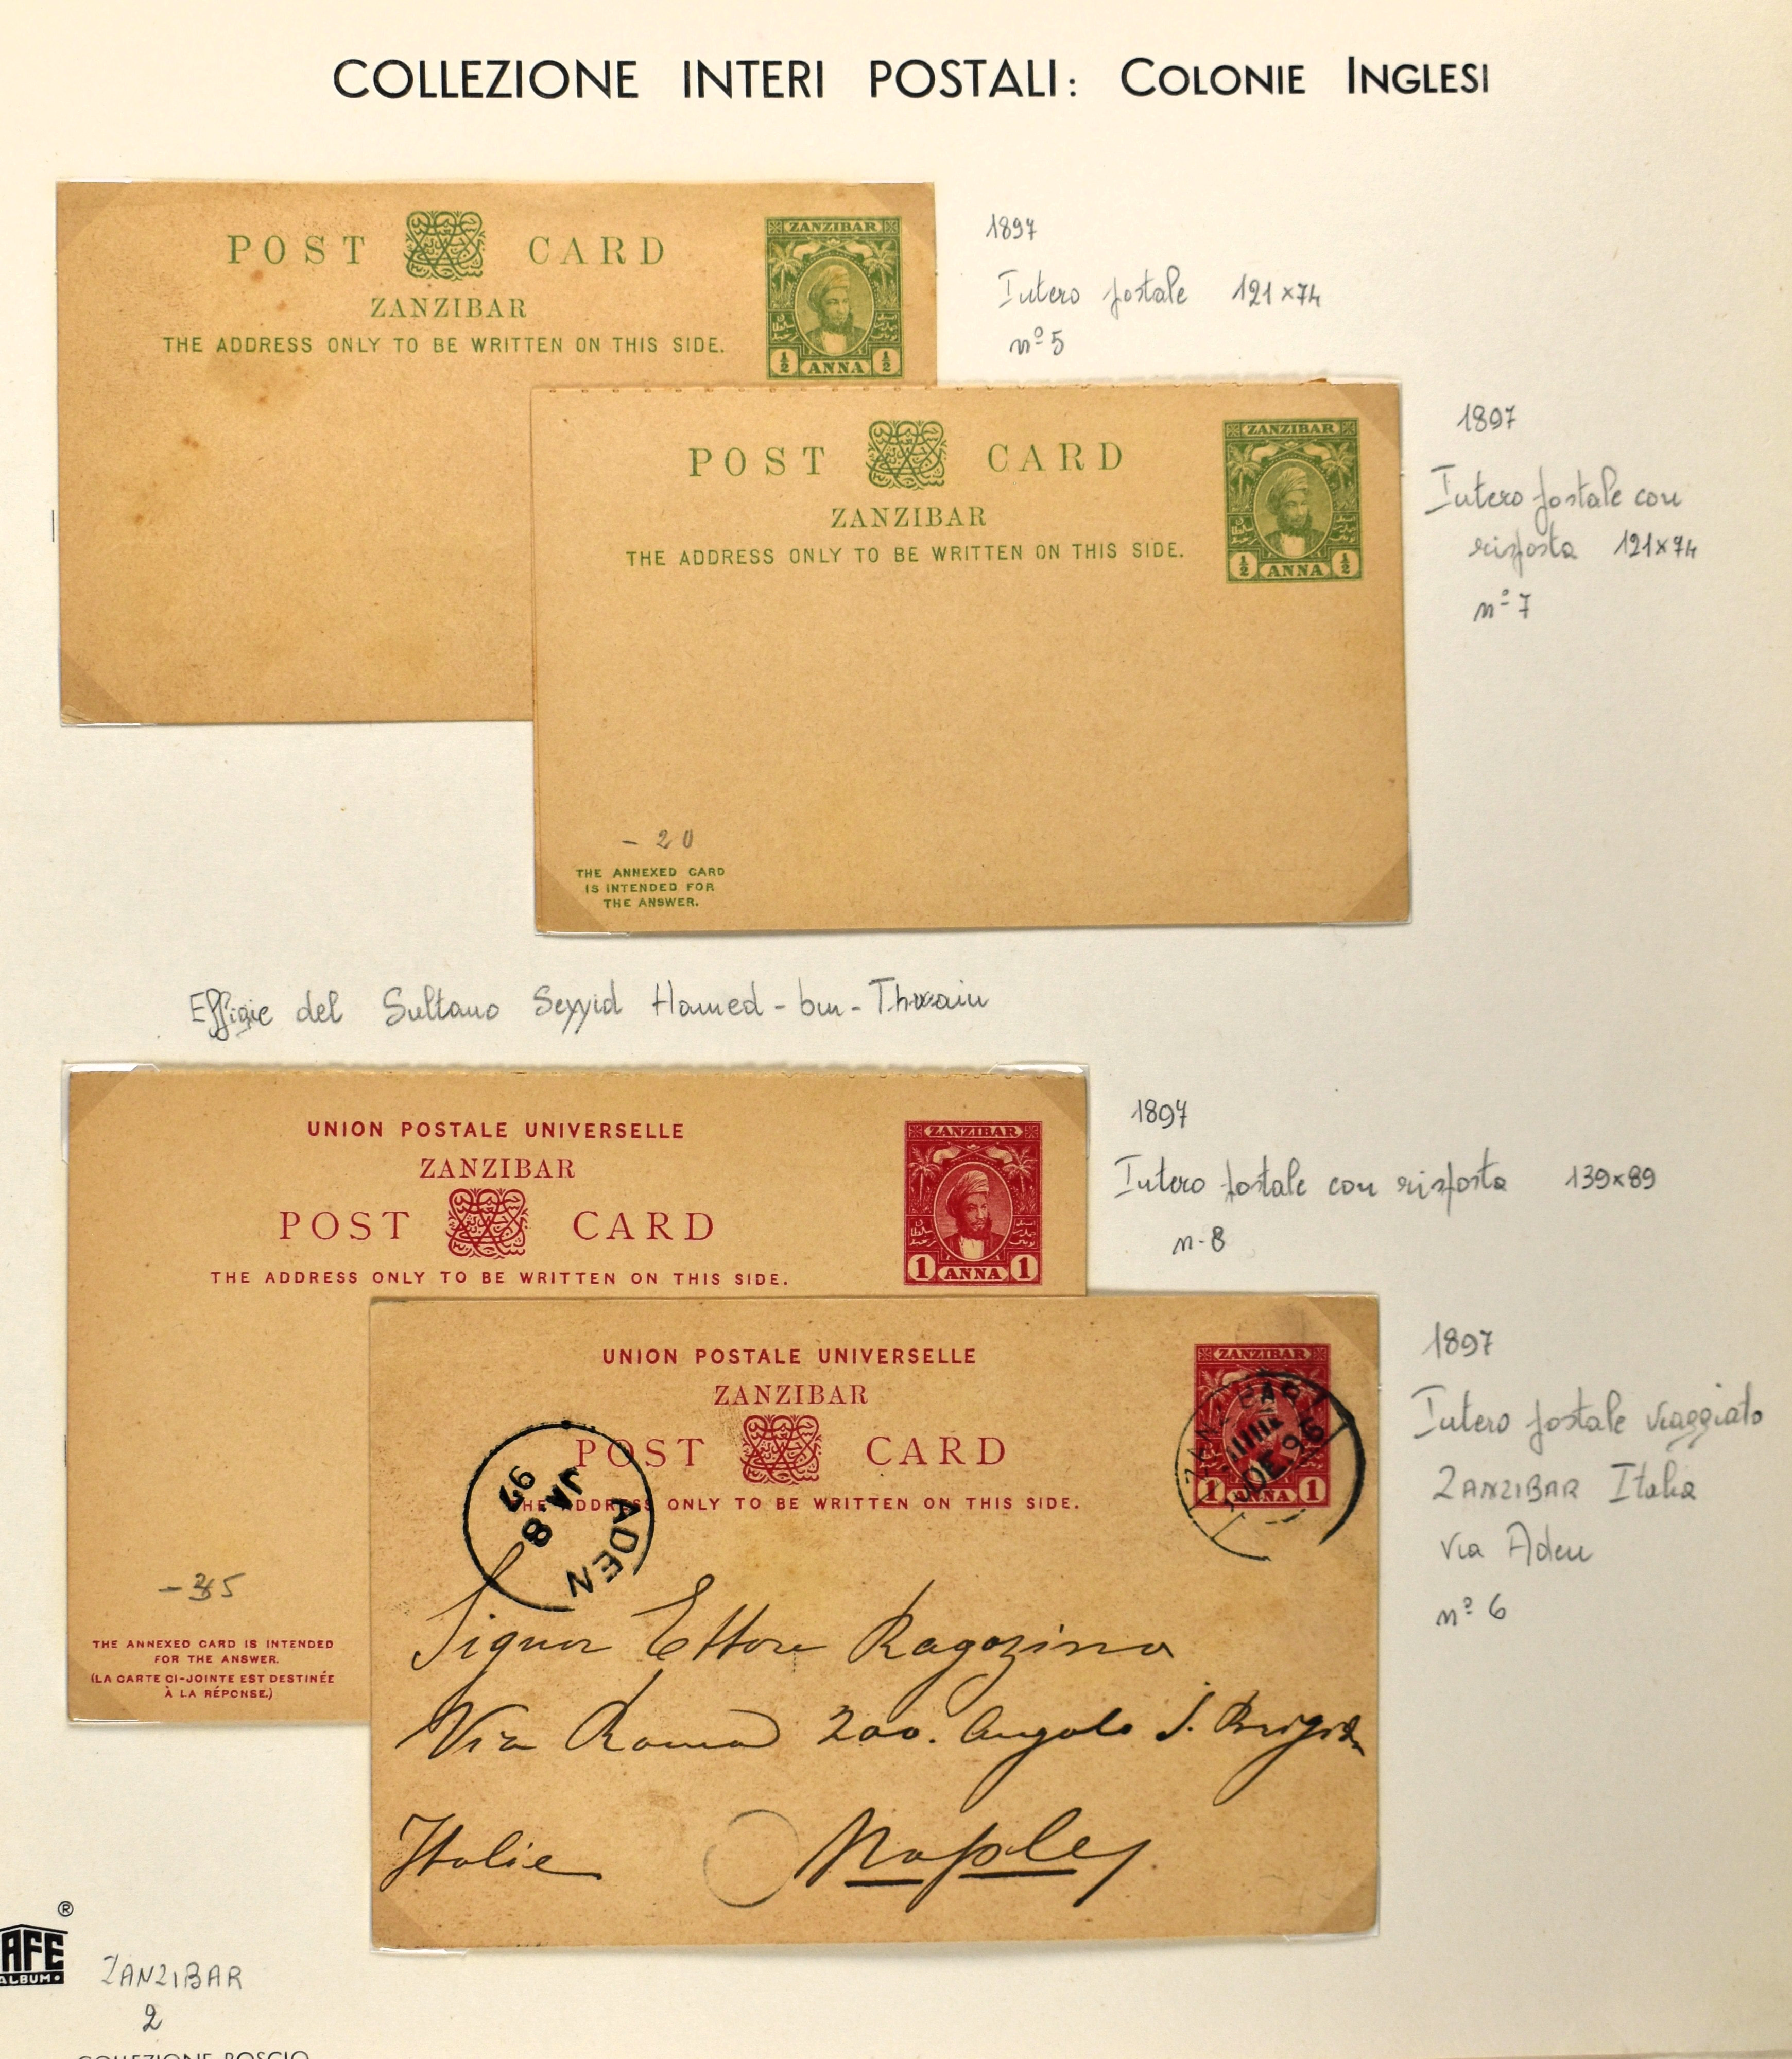 COLLEZIONE INTERI POSTALI: COLONIE INGLESI
POST CARD
ZANZIBAR
THE ADDRESS ONLY TO BE WRITTEN ON THIS SIDE.
ZANZIBAR
½ ANNA ½
1897
Intero postale 121×74
nº 5
POST CARD
ZANZIBAR
THE ADDRESS ONLY TO BE WRITTEN ON THIS SIDE.
ZANZIBAR
½ ANNA ½
- 20
THE ANNEXED CARD
IS INTENDED FOR
THE ANSWER.
1897
Intero postale con
risposta 121×74
nº 7
Effigie del Sultano Seyyid Hamed-bin-Thwain
UNION POSTALE UNIVERSELLE
ZANZIBAR
POST CARD
THE ADDRESS ONLY TO BE WRITTEN ON THIS SIDE.
ZANZIBAR
1 ANNA 1
THE ANNEXED CARD IS INTENDED
FOR THE ANSWER.
(LA CARTE CI-JOINTE EST DESTINÉE
À LA RÉPONSE.)
1897
Intero postale con risposta 139×89
n-8
UNION POSTALE UNIVERSELLE
ZANZIBAR
POST CARD
THE ADDRESS ONLY TO BE WRITTEN ON THIS SIDE.
ZANZIBAR
1 ANNA 1
ZANZIBAR
DE 96
ADEN
JA 8
97
Signor Ettore Ragozino
Via Roma 200. Angolo S. Brigida
Italie Naples
1897
Intero postale viaggiato
ZANZIBAR Italia
via Aden
nº 6
®
AFE
ALBUM
ZANZIBAR
2
COLLEZIONE BOSCIO